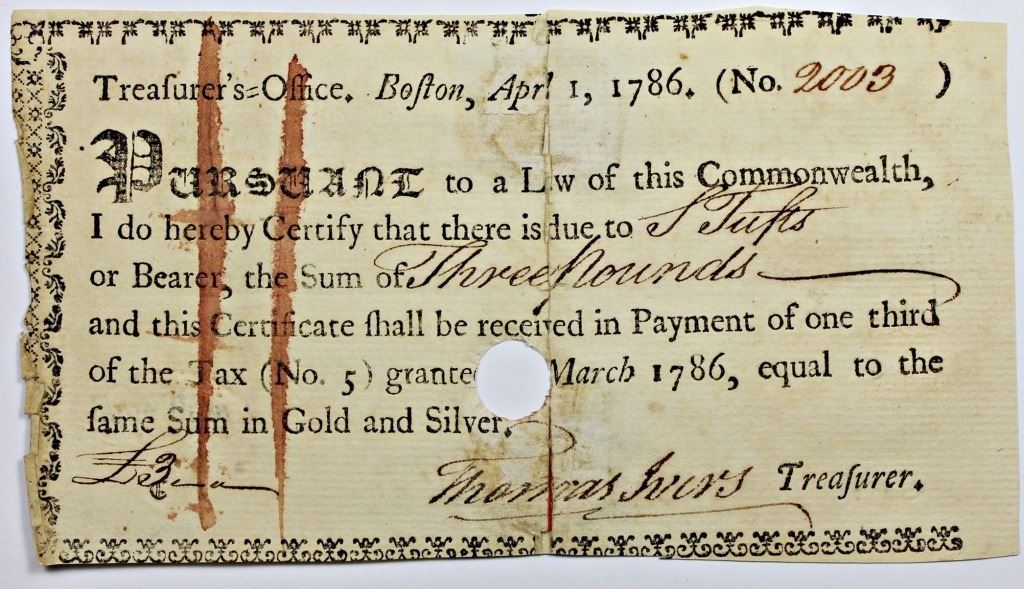 Treaſurer's=Office. Boſton, Apr l 1, 1786. (No. 2003 )
PURSUANT to a L w of this Commonwealth,
I do hereby Certify that there is due to S Tufts
or Bearer, the Sum of Three Pounds
and this Certificate ſhall be received in Payment of one third
of the Tax (No. 5) grante March 1786, equal to the
ſame Sum in Gold and Silver.
£3
Thomas Ivers Treaſurer.